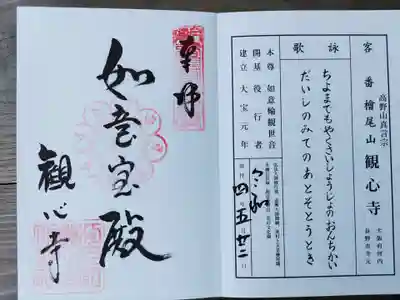 高野山真言宗
客番 檜尾山 観心寺
大阪府河内
長野市寺元
詠歌
ちよまでもやくさいしょうじょのおんちかい
だいしのみてのあとそとうとき
本尊 如意輪観世音
開基 役行者
建立 大宝元年
令和 四 五 廿二
奉拝
如意宝殿
観心寺